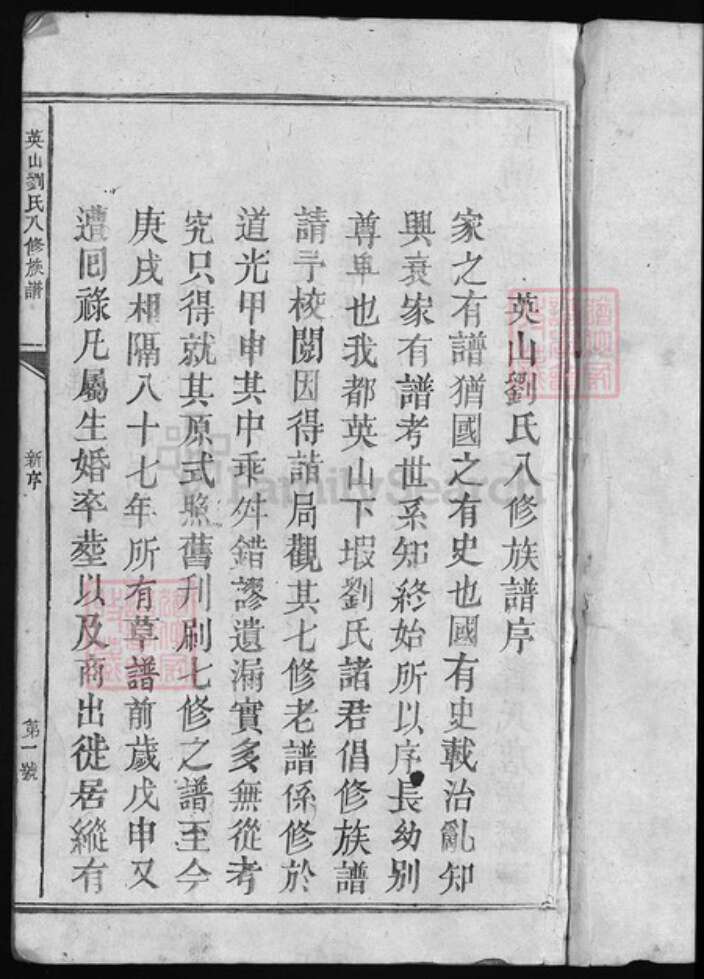 英山劉氏八修族譜序
家之有譜猶國之有史也國有史載治亂知
興衰家有譜考世系知終始所以序長幼別
尊卑也我都英山下塅劉氏諸君倡修族譜
請予校閱因得詣局觀其七修老譜係修於
道光甲申其中乖舛錯謬遺漏實多無從考
究只得就其原式照舊刋刷七修之譜至今
庚戌相隔八十七年所有草譜前歲戊申又
遭回祿凡屬生婚卒塟以及商出徙居縱有
英山劉氏八修族譜
新序
第一號
FamilySearch